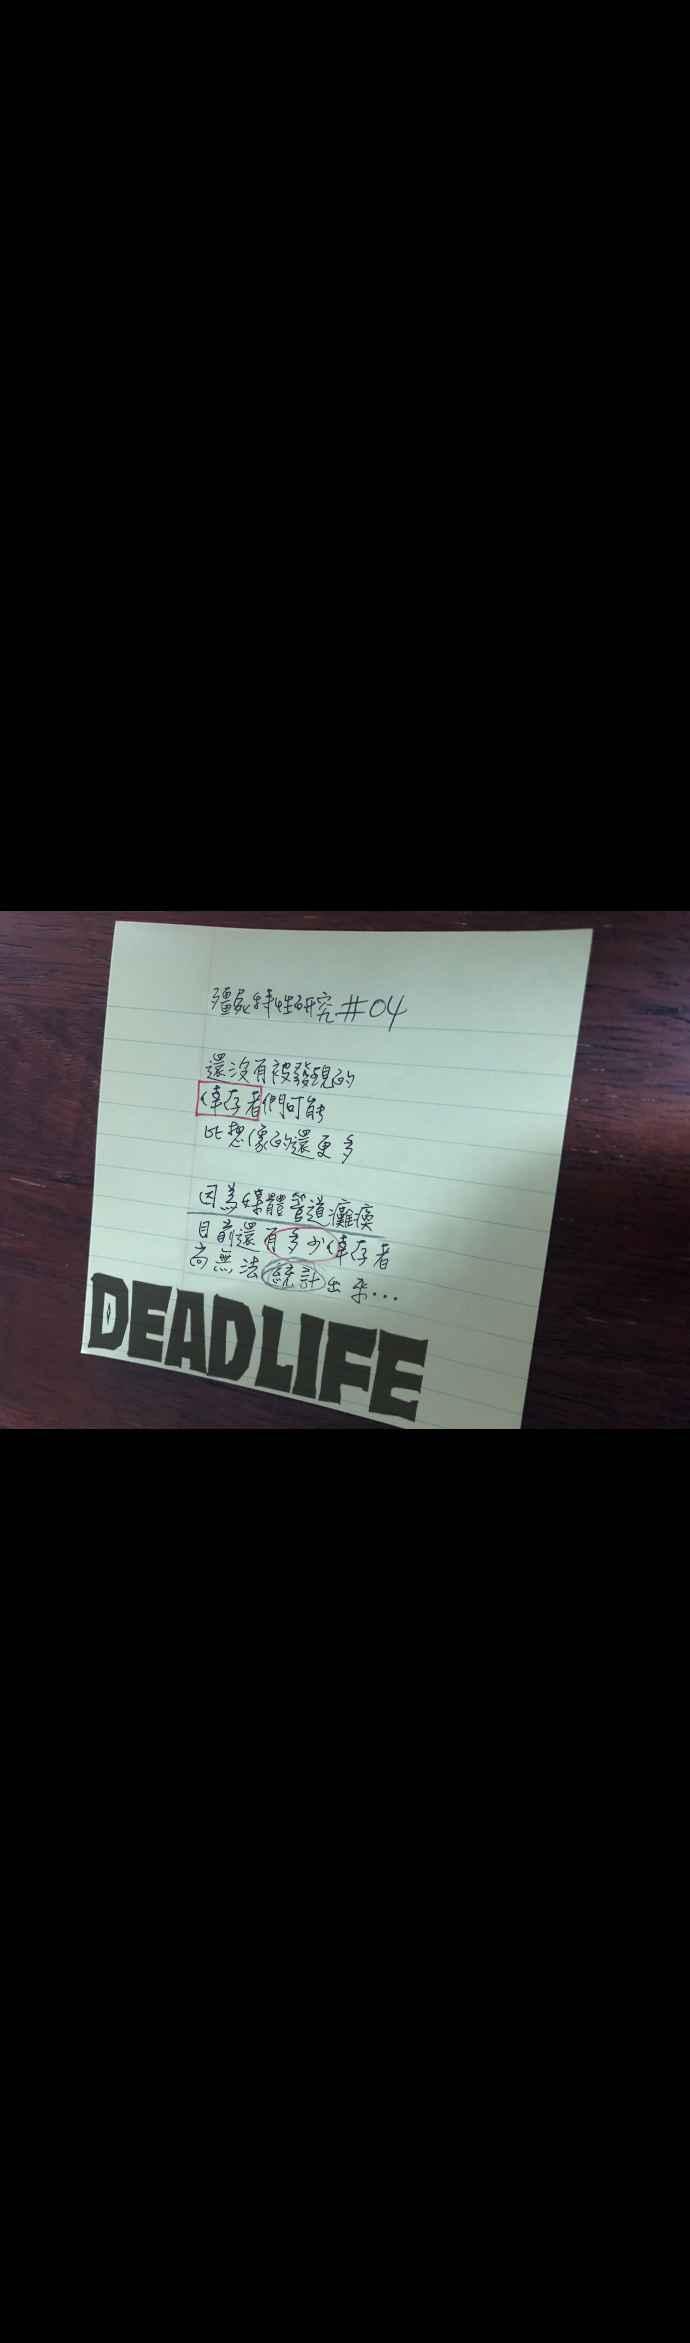 殭屍特性研究#04
還沒有被發現的
倖存者們可能
比想像的還更多
因為媒體管道癱瘓
目前還有多少倖存者
尚無法統計出來...
DEADLIFE